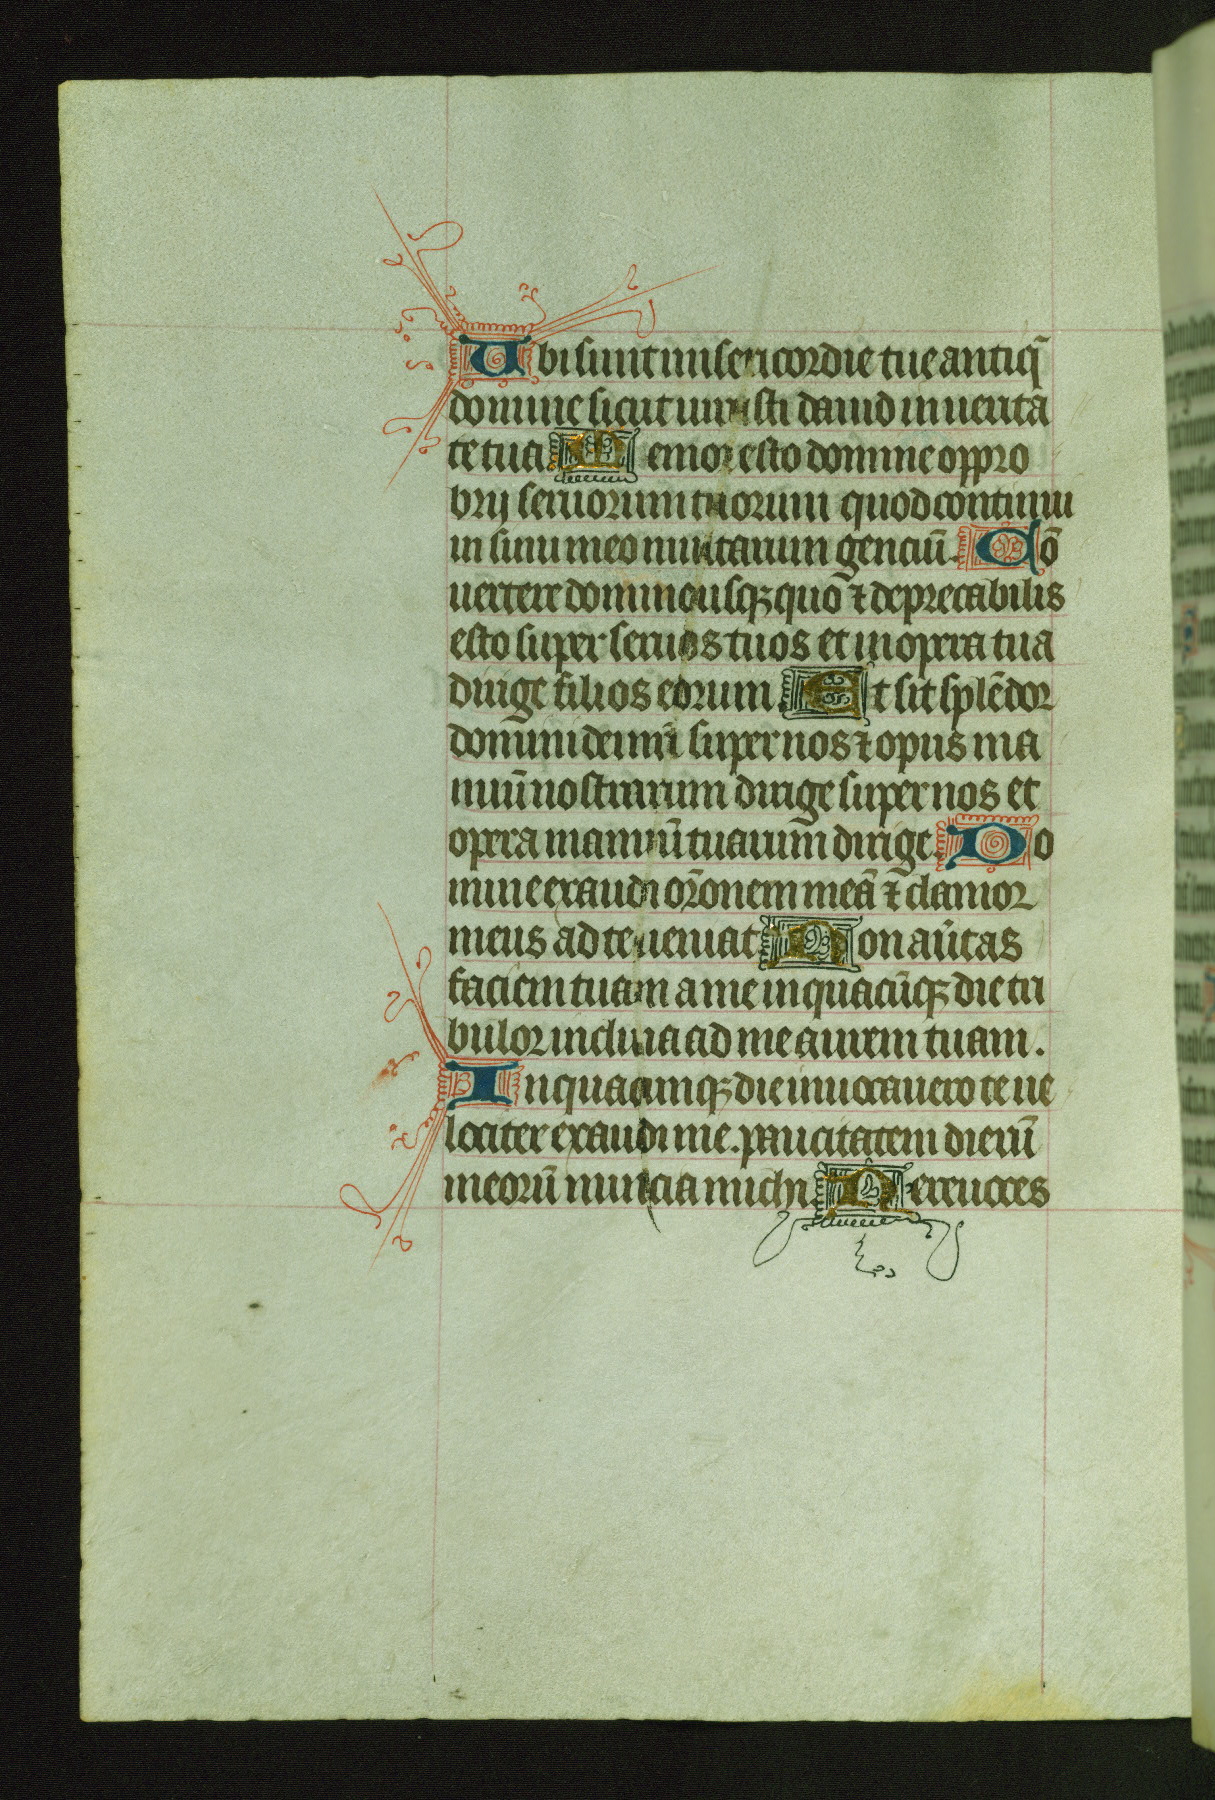 Ubi sunt misericordie tue antiq̄
domine sicut iurasti dauid in uerita
te tua Memor esto domine oppro
brij seruorum tuorum quod continui
in sinu meo multarum genciū. Cō
uertere domine usqꝫ quo ⁊ deprecabilis
esto super seruos tuos et in opera tua
dirige filios eorum Et sit splēdor
domini dei nr̄i super nos ⁊ opus ma
nuū nostrarum dirige super nos et
opera manuū tuarum dirige. Do
mine exaudi or̄onem meā ⁊ clamor
meus ad te ueniat Non au̅tas
faciem tuam a me in quacūqꝫ die tri
bulor inclina ad me aurem tuam.
In quacumqꝫ die inuocauero te ue
lociter exaudi me. paucitatem dierū
meorū nuncia michi Ne reuoces